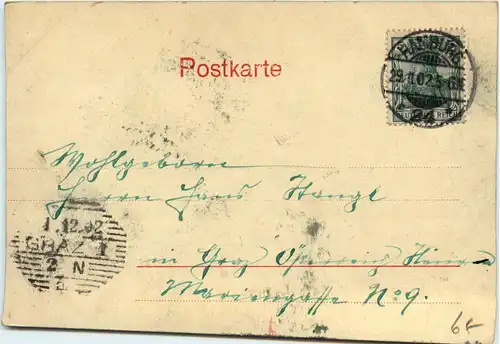 Postkarte
HAMBURG
29.11.02.5-6N
Wohlgeboren
Herrn Hans Stangl
1.12.02
GRAZ 1
2 N
in Graz Österreich
Mariengasse No 9.
6-